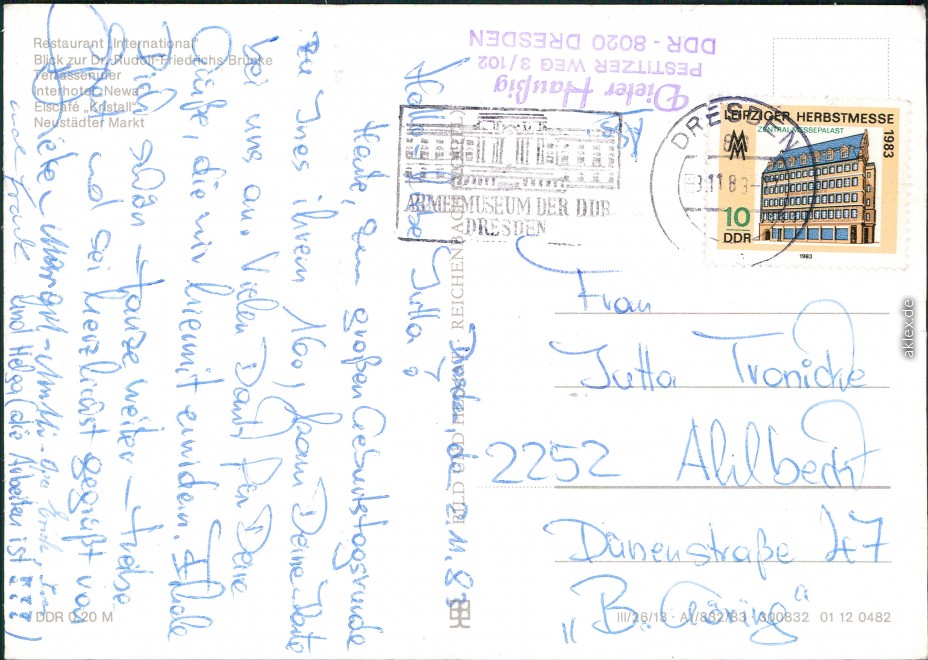 Restaurant „International"
Blick zur Dr.-Rudolf-Friedrichs-Brücke
Terrassenufer
Interhotel „Newa"
Eiscafé „Kristall"
Neustädter Markt
Dieter Haußig
PESTITZER WEG 3/102
DDR - 8020 DRESDEN
ARMEEMUSEUM DER DDR
DRESDEN
DRESDEN
LEIPZIGER HERBSTMESSE
ZENTRALMESSEPALAST
1983
10
DDR
1983
Dresden, d. 2.11.83
Hallo, liebe Jutta!
Heute, zum großen Geburtstagsrunde
zu Ines ihrem 16., kam Deine Karte
bei uns an. Vielen Dank für Deine
Grüße, die wir hiermit erwidern.
Dich schön
und sei herzlichst gegrüßt von
und Helga (die Arbeiten ist !!!)
Frau
Jutta Tronicke
2252 Ahlbeck
Dünenstraße 47
„B. Göring"
BILD UND HEIMAT REICHENBACH
DDR 0,20 M
III/26/13 · A1/832/83 300832 01 12 0482
aklex.de